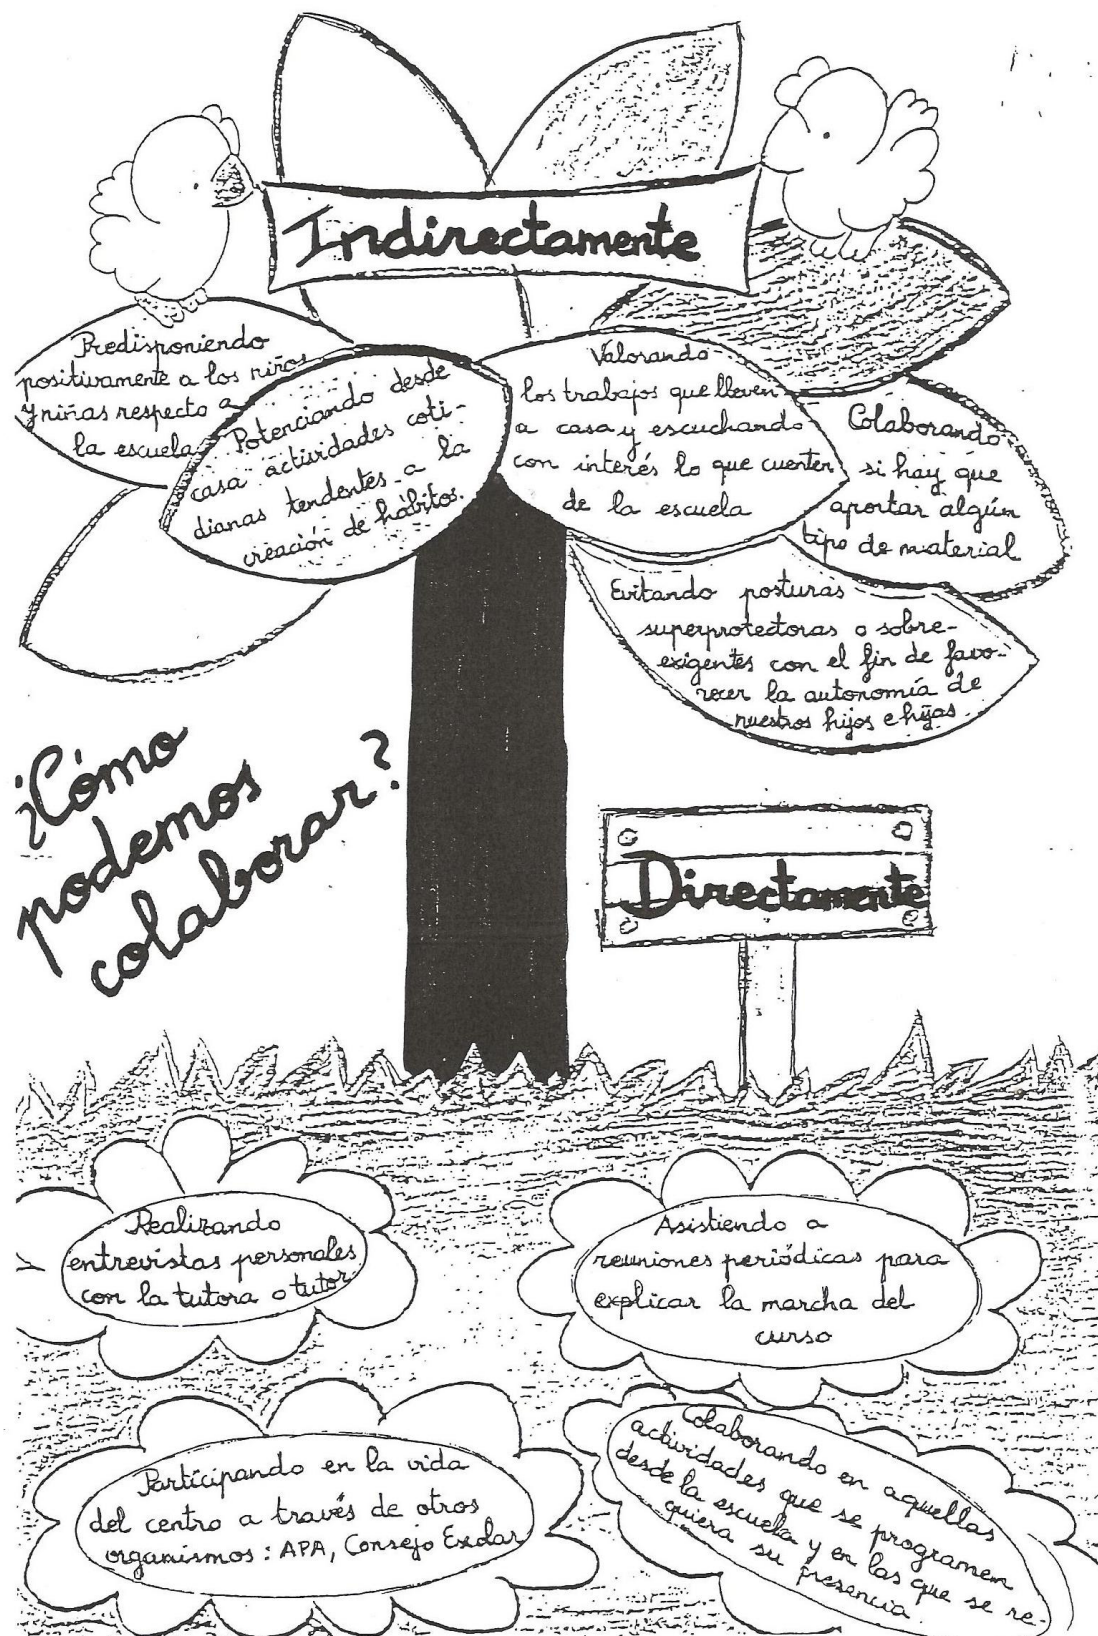 Indirectamente
Predisponiendo
positivamente a los niños
y niñas respecto a
la escuela
Potenciando desde
casa actividades coti-
dianas tendentes a la
creación de hábitos.
Valorando
los trabajos que lleven
a casa y escuchando
con interés lo que cuenten
de la escuela
Colaborando
si hay que
aportar algún
tipo de material
Evitando posturas
superprotectoras o sobre-
exigentes con el fin de favo-
recer la autonomía de
nuestros hijos e hijas
¿Cómo
podemos
colaborar?
Directamente
Realizando
entrevistas personales
con la tutora o tutor
Asistiendo a
reuniones periódicas para
explicar la marcha del
curso
Participando en la vida
del centro a través de otros
organismos: APA, Consejo Escolar
Colaborando en aquellas
actividades que se programen
desde la escuela y en las que se re-
quiera su presencia